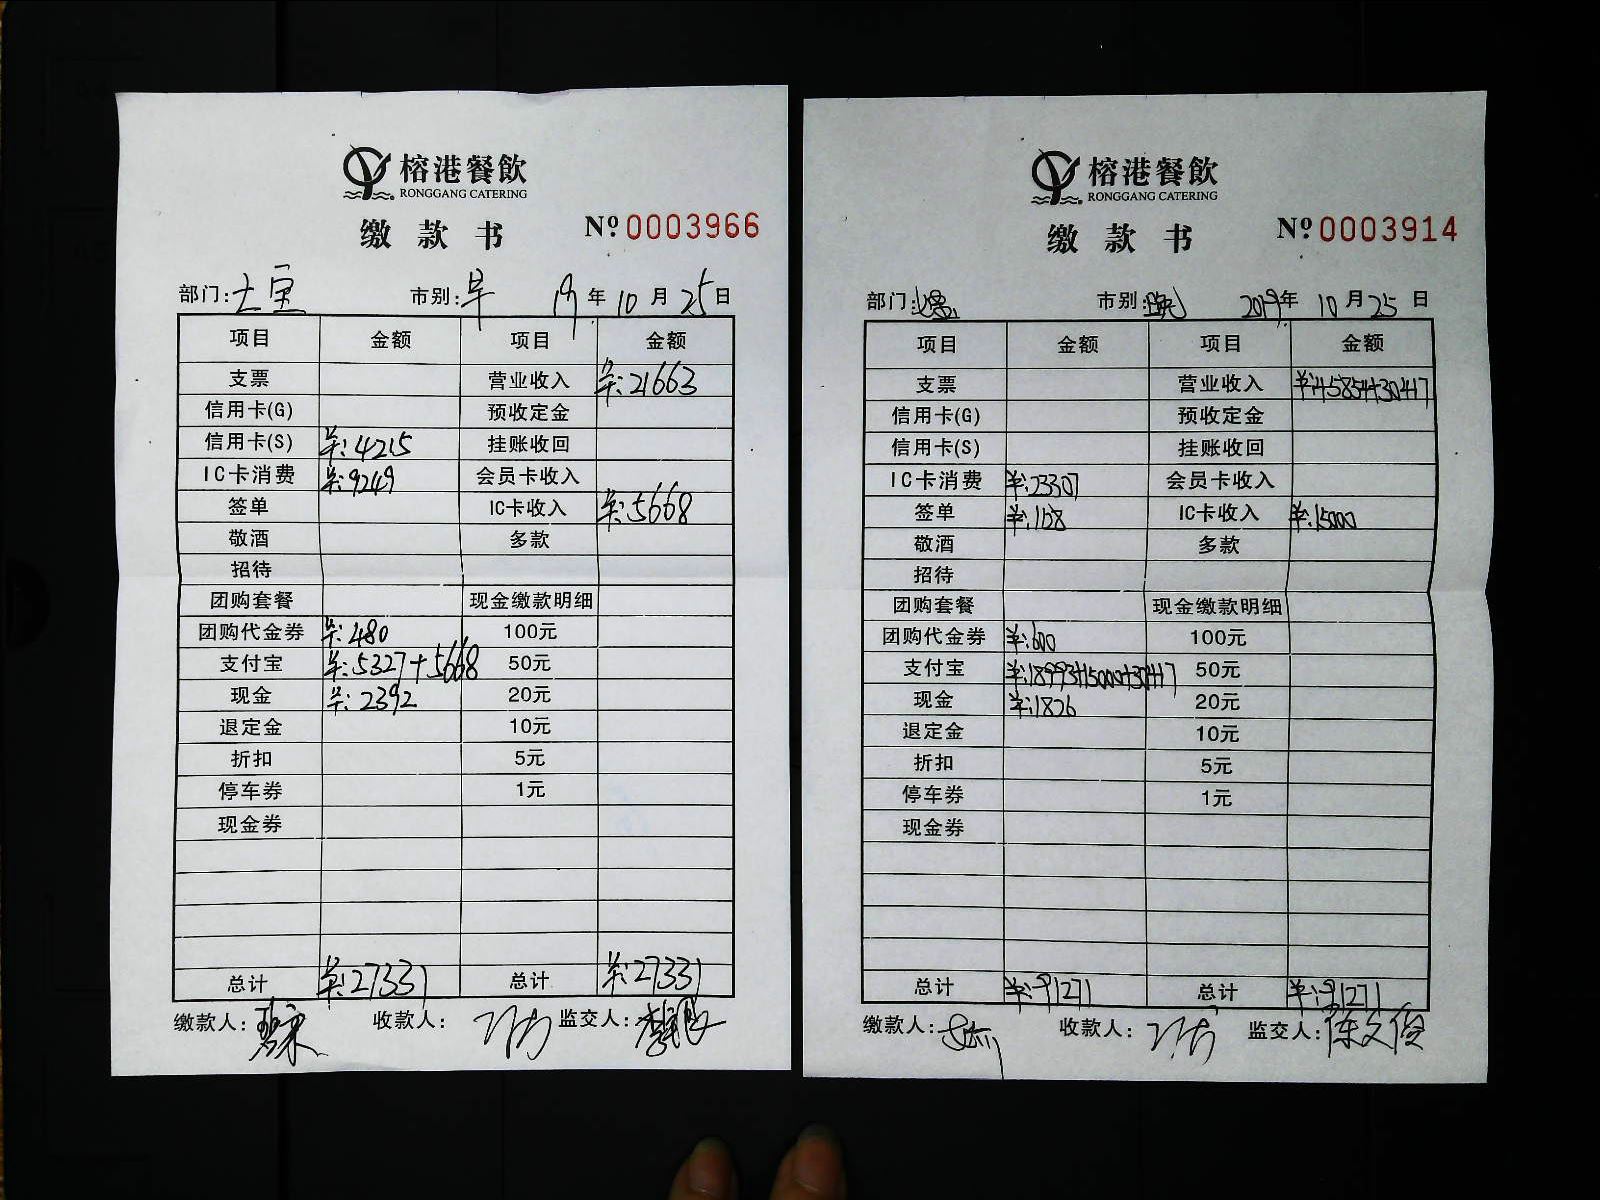 榕港餐飲
RONGGANG CATERING
缴款书
№ 0003966
部门: 市别:早 19年10月25日
项目 金额 项目 金额
支票 营业收入 羊:21663
信用卡(G) 预收定金
信用卡(S) 羊:4215 挂账收回
IC卡消费 羊:9249 会员卡收入
签单 IC卡收入 羊:5668
敬酒 多款
招待
团购套餐 现金缴款明细
团购代金券 羊:480 100元
支付宝 羊:5327+5668 50元
现金 羊:2392 20元
退定金 10元
折扣 5元
停车券 1元
现金券
总计 羊:27331 总计 羊:27331
缴款人: 收款人: 监交人:
榕港餐飲
RONGGANG CATERING
缴款书
№ 0003914
部门: 市别:晚 2019年10月25日
项目 金额 项目 金额
支票 营业收入 羊:45854+30417
信用卡(G) 预收定金
信用卡(S) 挂账收回
IC卡消费 羊:23307 会员卡收入
签单 羊:1128 IC卡收入 羊:15000
敬酒 多款
招待
团购套餐 现金缴款明细
团购代金券 羊:600 100元
支付宝 羊:18993+15000+30417 50元
现金 羊:1826 20元
退定金 10元
折扣 5元
停车券 1元
现金券
总计 羊:91271 总计 羊:91271
缴款人: 收款人: 监交人:陈文俊